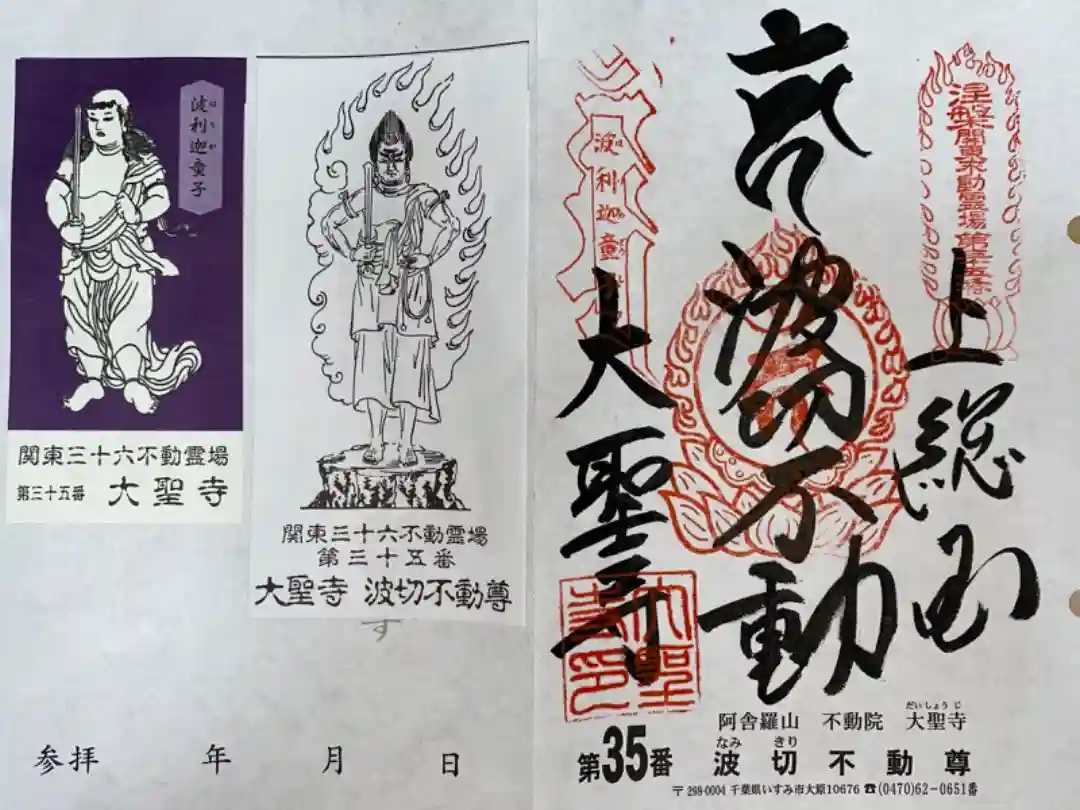 波利迦童子
はりか
関東三十六不動霊場
第三十五番 大聖寺
関東三十六不動霊場
第三十五番
大聖寺 波切不動尊
す
参拝 年 月 日
涅槃 関東不動霊場 第三十五番
上総国
波切不動
波利迦童子
大聖寺
大聖寺印
阿舎羅山 不動院 大聖寺
だいしょうじ
第35番 波切不動尊
なみ きり
〒298-0004 千葉県いすみ市大原10676 ☎(0470)62-0651番